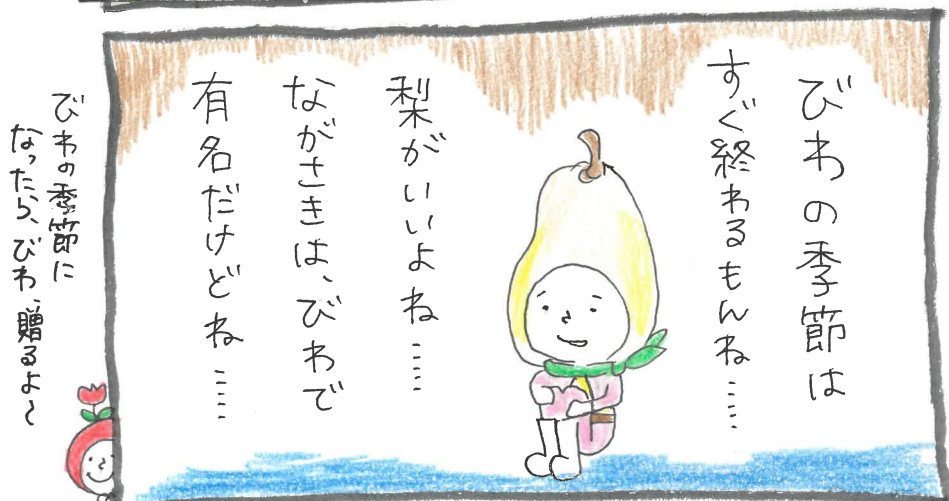 びわの季節は
すぐ終わるもんね……
梨がいいよね……
ながさきは、びわで
有名だけどね……
びわの季節に
なったら、びわ、贈るよ〜